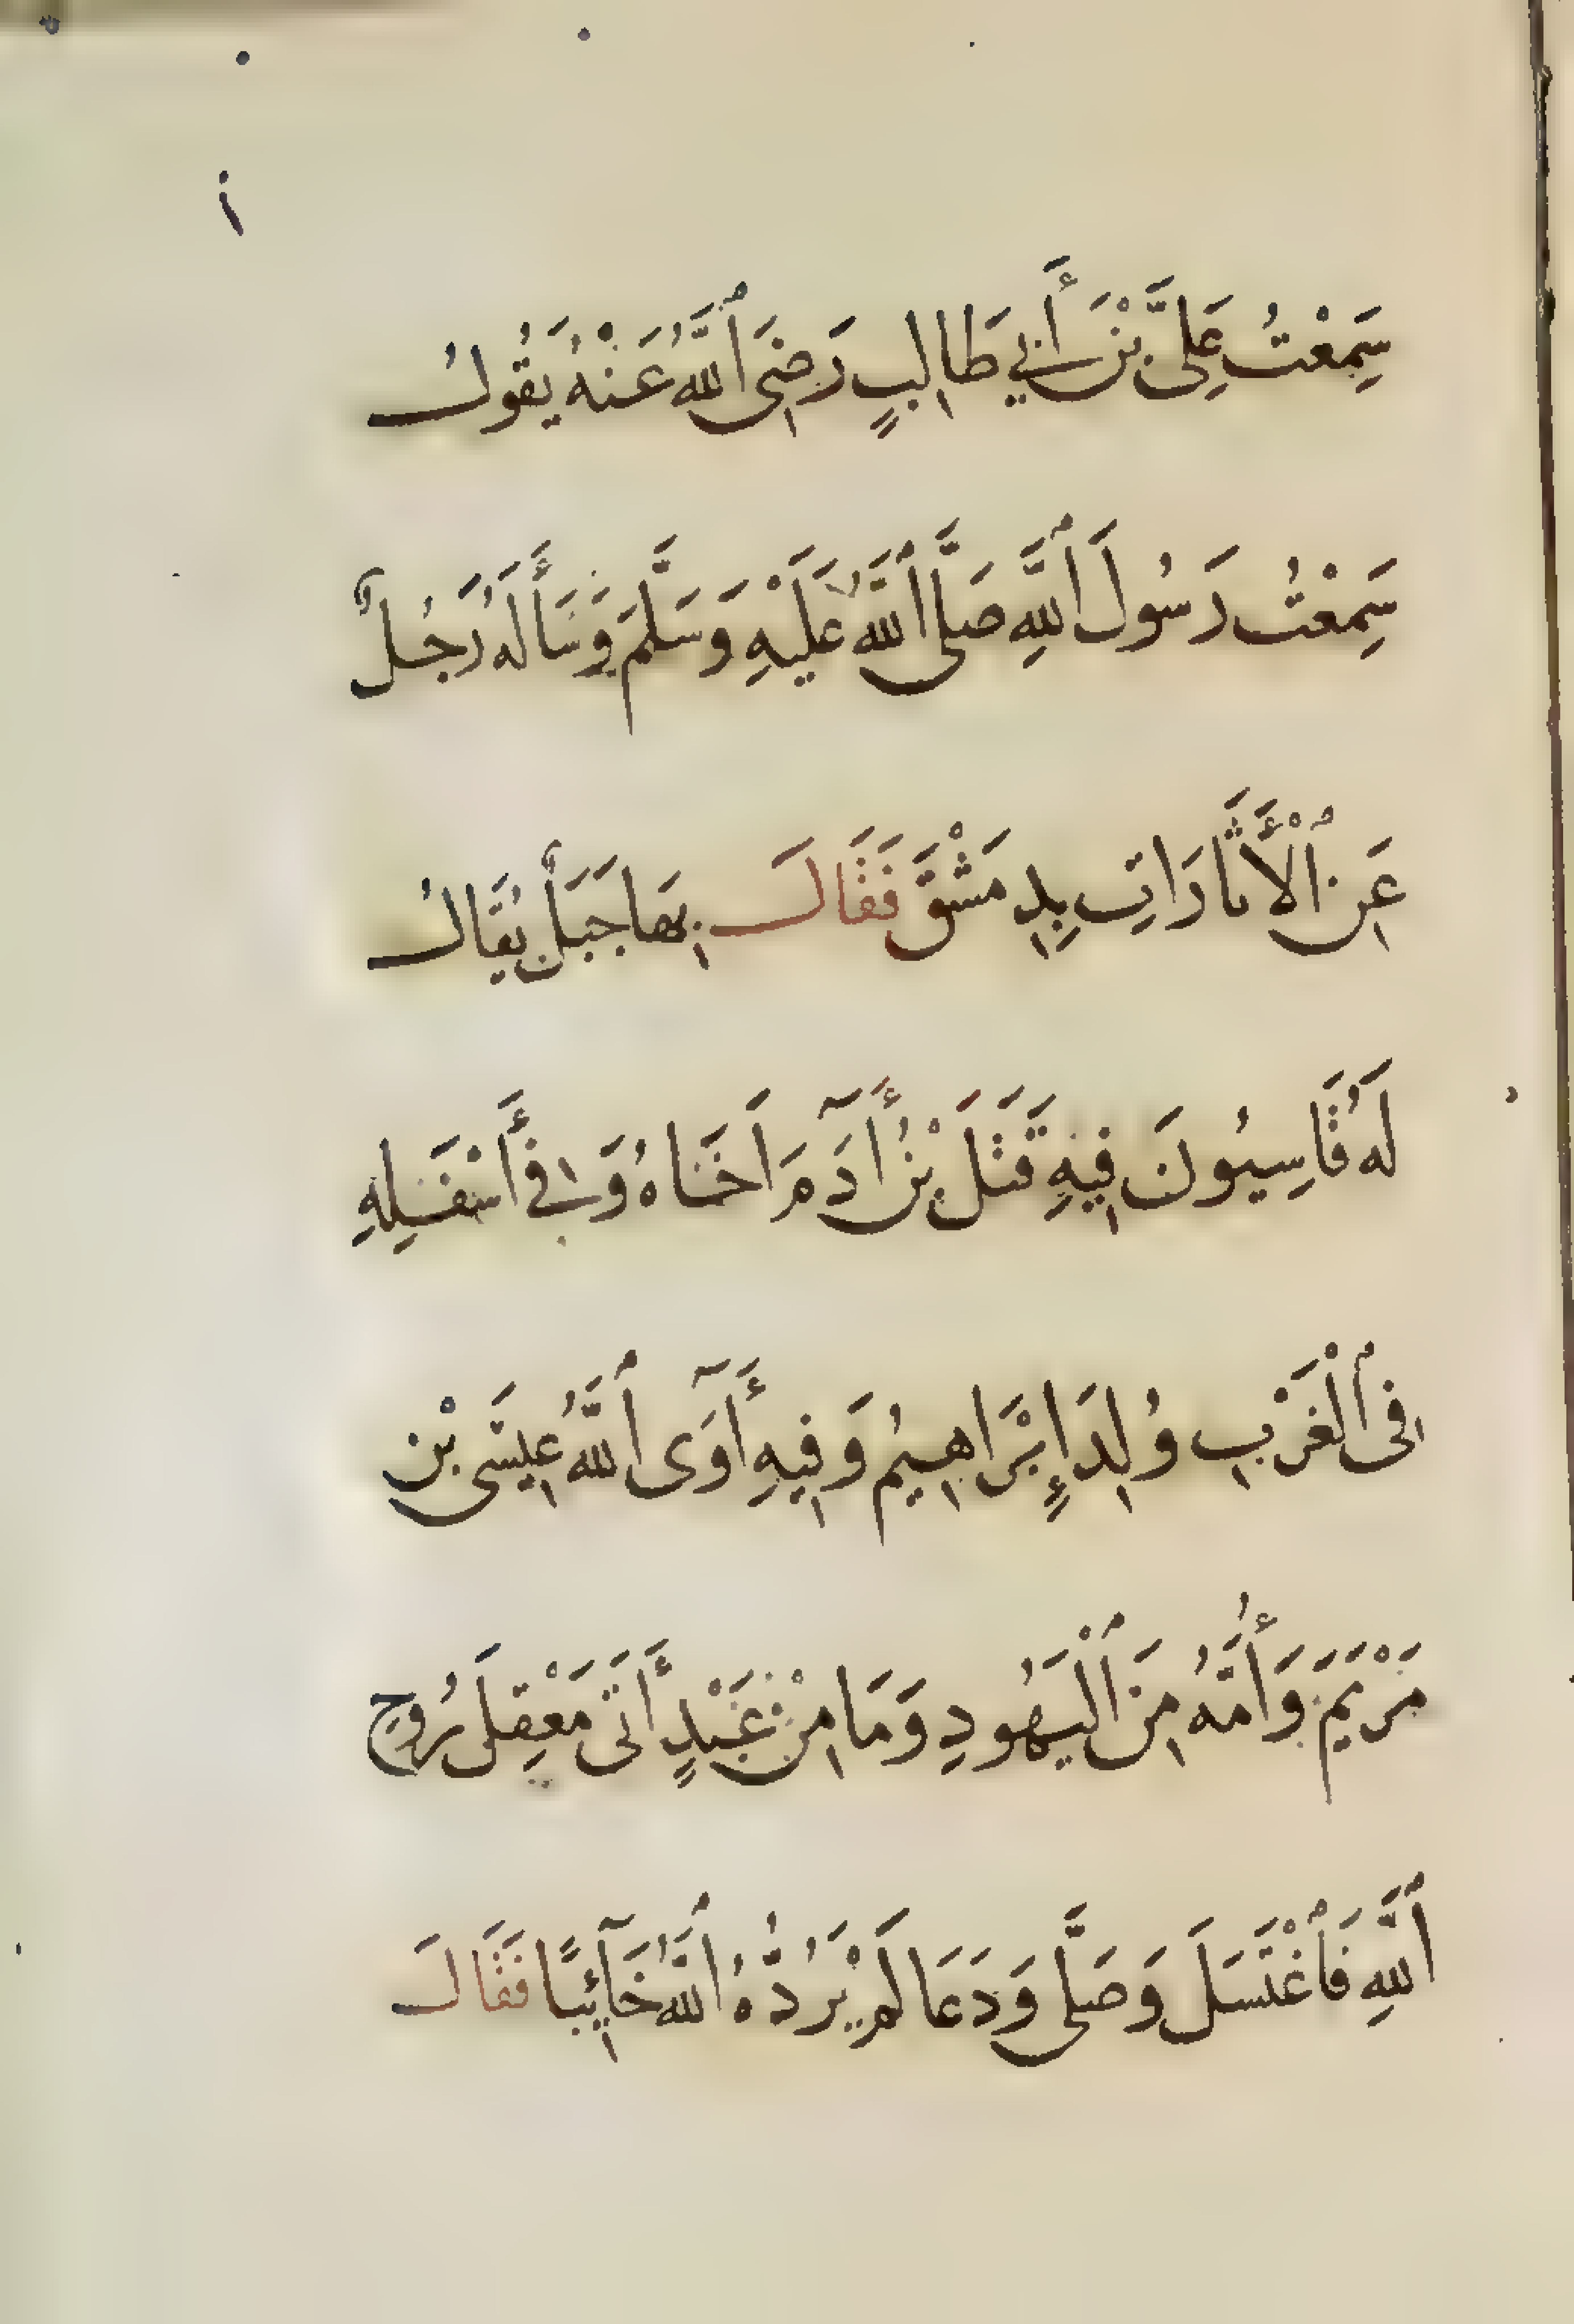 سَمِعْتُ عَلِيَّ بْنَ أَبِي طَالِبٍ رَضِيَ ٱللَّهُ عَنْهُ يَقُولُ
سَمِعْتُ رَسُولَ ٱللَّهِ صَلَّى ٱللَّهُ عَلَيْهِ وَسَلَّمَ وَسَأَلَهُ رَجُلٌ
عَنِ ٱلْأَثَارَاتِ بِدِمَشْقَ فَقَالَ بِهَا جَبَلٌ يُقَالُ
لَهُ قَاسِيُونَ فِيهِ قَتَلَ بْنُ أَٓدَمَ أَخَاهُ وَفِي أَسْفَلِهِ
فِي ٱلْغَرْبِ وُلِدَ إِبْرَاهِيمُ وَفِيهِ أَٓوَى ٱللَّهُ عِيسَى بْنَ
مَرْيَمَ وَأُمَّهُ مِنَ ٱلْيَهُودِ وَمَا مِنْ عَبْدٍ أَتَى مَعْقِلَ رُوحِ
ٱللَّهِ فَٱغْتَسَلَ وَصَلَّى وَدَعَا لَمْ يَرُدُّهُ ٱللَّهُ خَآئِبًا فَقَالَ